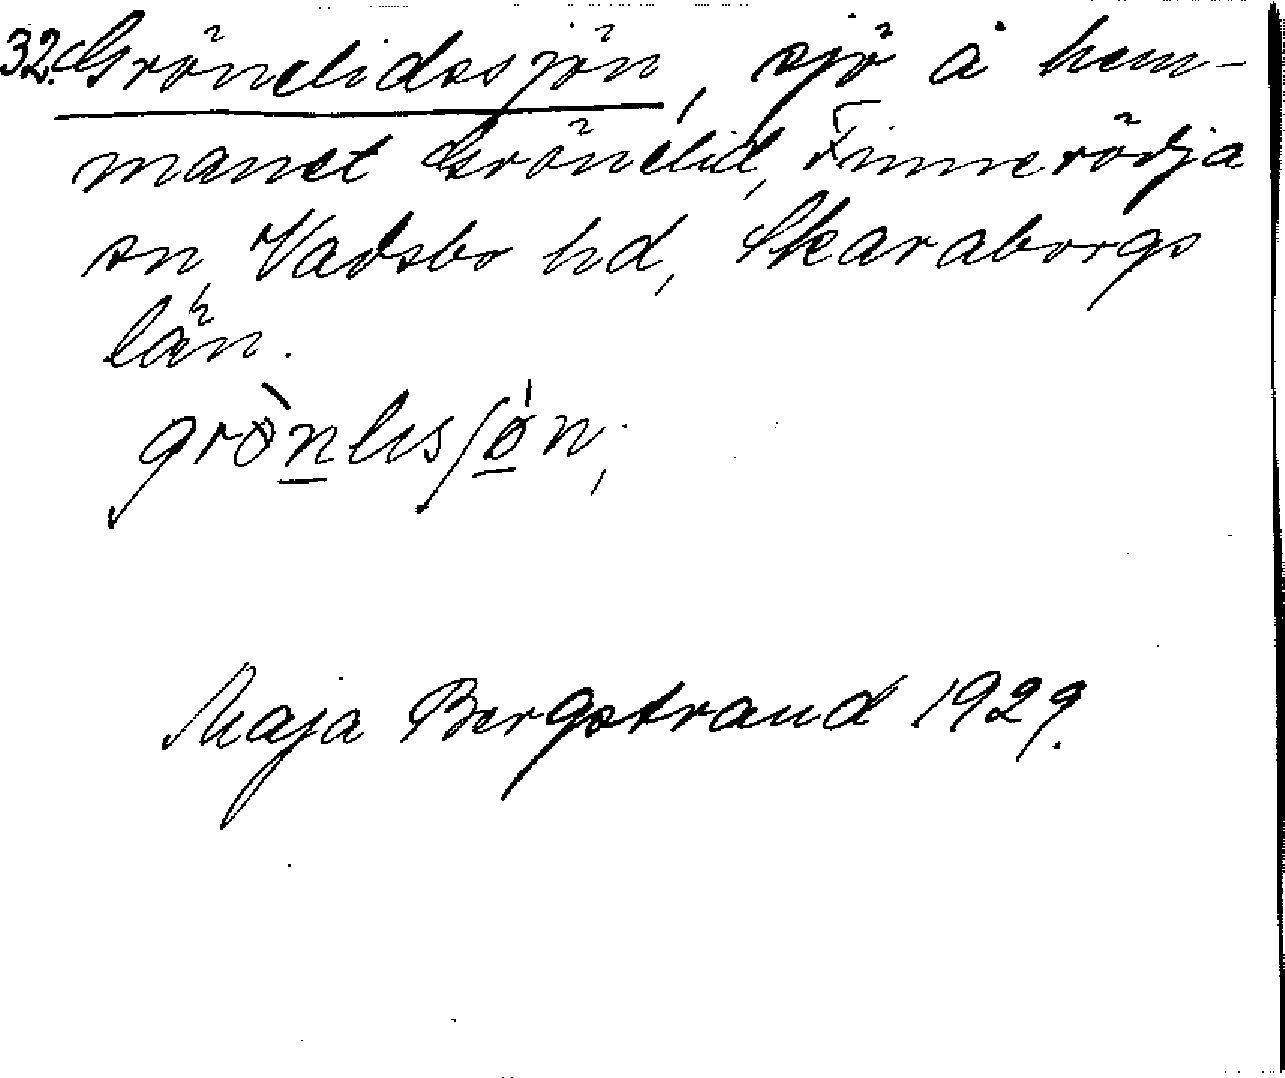 32. Grönelidssjön, sjö å hem-
manet Grönelid, Finnerödja
sn, Vadsbo hd, Skaraborgs
län.
grö̀nlisʃǿn,
Maja Bergstrand 1929.